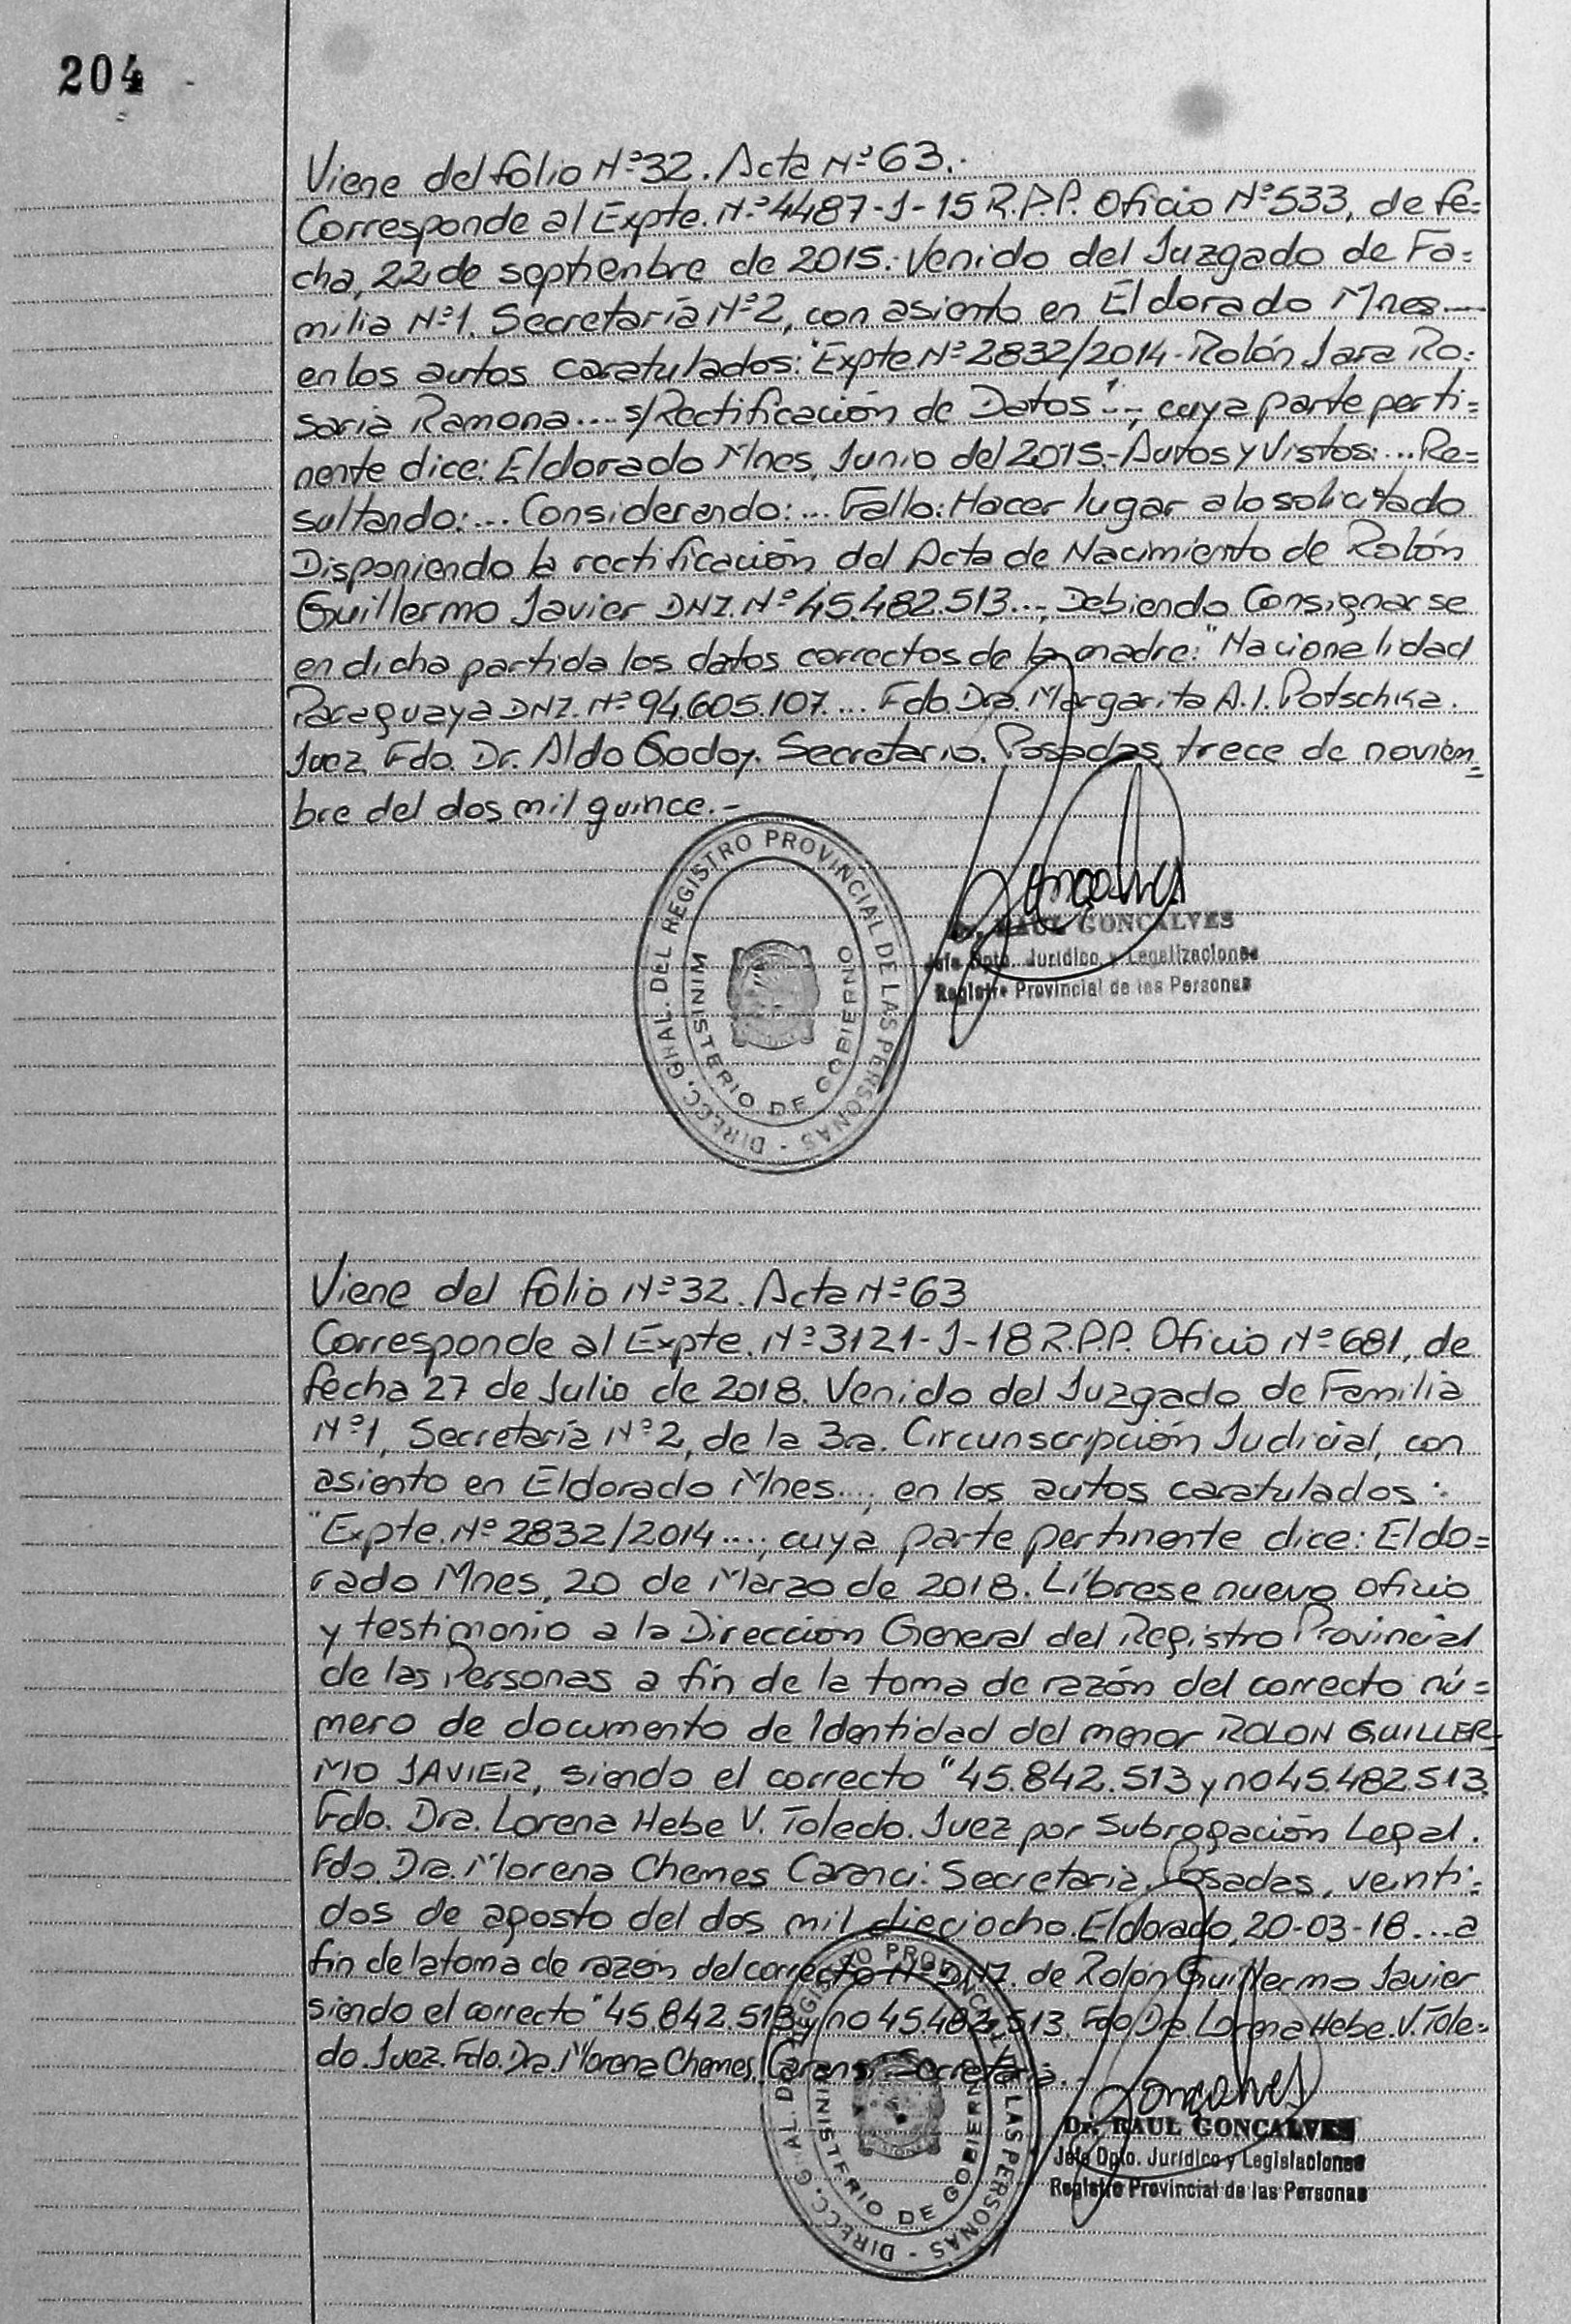 204
Viene del folio Nº 32. Acta Nº 63.-
Corresponde al Expte. Nº 4487-J-15 R.P.P. Oficio Nº 533, de fe=
cha, 22 de septienbre de 2015.- Venido del Juzgado de Fa=
milia Nº 1. Secretaría Nº 2, con asiento en Eldorado Mnes....
en los autos caratulados: "Expte. Nº 2832/2014 - Rolón Jara Ro=
saria Ramona.... s/Rectificación de Datos"..-, cuya parte perti=
nente dice: Eldorado Mnes, Junio del 2015.- Autos y Vistos:... Re=
sultando:... Considerando:... Fallo: Hacer lugar a lo solicitado
Disponiendo la rectificación del Acta de Nacimiento de Rolón
Guillermo Javier DNI. Nº 45.482.513..., Debiendo Consignarse
en dicha partida los datos correctos de la madre: "Nacionalidad
Paraguaya DNI. Nº 94.605.107.... Fdo. Dra. Margarita A.I. Potschka.
Juez Fdo. Dr. Aldo Godoy. Secretario. Posadas, trece de novien=
bre del dos mil quince.-
DIRECC. GRAL. DEL REGISTRO PROVINCIAL DE LAS PERSONAS -
MINISTERIO DE GOBIERNO
Goncalves
Dr. RAUL GONCALVES
Jefe Dpto. Jurídico y Legalizaciones
Registro Provincial de las Personas
Viene del folio Nº 32. Acta Nº 63
Corresponde al Expte. Nº 3121-J-18 R.P.P. Oficio Nº 681, de
fecha 27 de Julio de 2018. Venido del Juzgado de Familia
Nº 1, Secretaría Nº 2, de la 3ra. Circunscripción Judicial, con
asiento en Eldorado Mnes..., en los autos caratulados:
"Expte. Nº 2832/2014...., cuya parte pertinente dice: Eldo=
rado Mnes, 20 de Marzo de 2018. Líbrese nuevo oficio
y testimonio a la Dirección General del Registro Provincial
de las Personas a fin de la toma de razón del correcto nú=
mero de documento de Identidad del menor ROLON GUILLER
MO JAVIER, siendo el correcto "45.842.513 y no 45.482.513.
Fdo. Dra. Lorena Hebe V. Toledo. Juez por Subrogación Legal.
Fdo Dra. Morena Chemes Caranci. Secretaria. Posadas, veinti=
dos de agosto del dos mil dieciocho. Eldorado, 20-03-18...a
fin de la toma de razón del correcto Nº DNI. de Rolón Guillermo Javier
siendo el correcto "45.842.513 y no 45.482.513. Fdo Dra Lorena Hebe. V. Tole=
do. Juez. Fdo. Dra. Morena Chemes Caranci Secretaria..
DIRECC. GRAL. DEL REGISTRO PROVINCIAL DE LAS PERSONAS -
MINISTERIO DE GOBIERNO
Goncalves
Dr. RAUL GONCALVES
Jefe Dpto. Jurídico y Legislaciones
Registro Provincial de las Personas